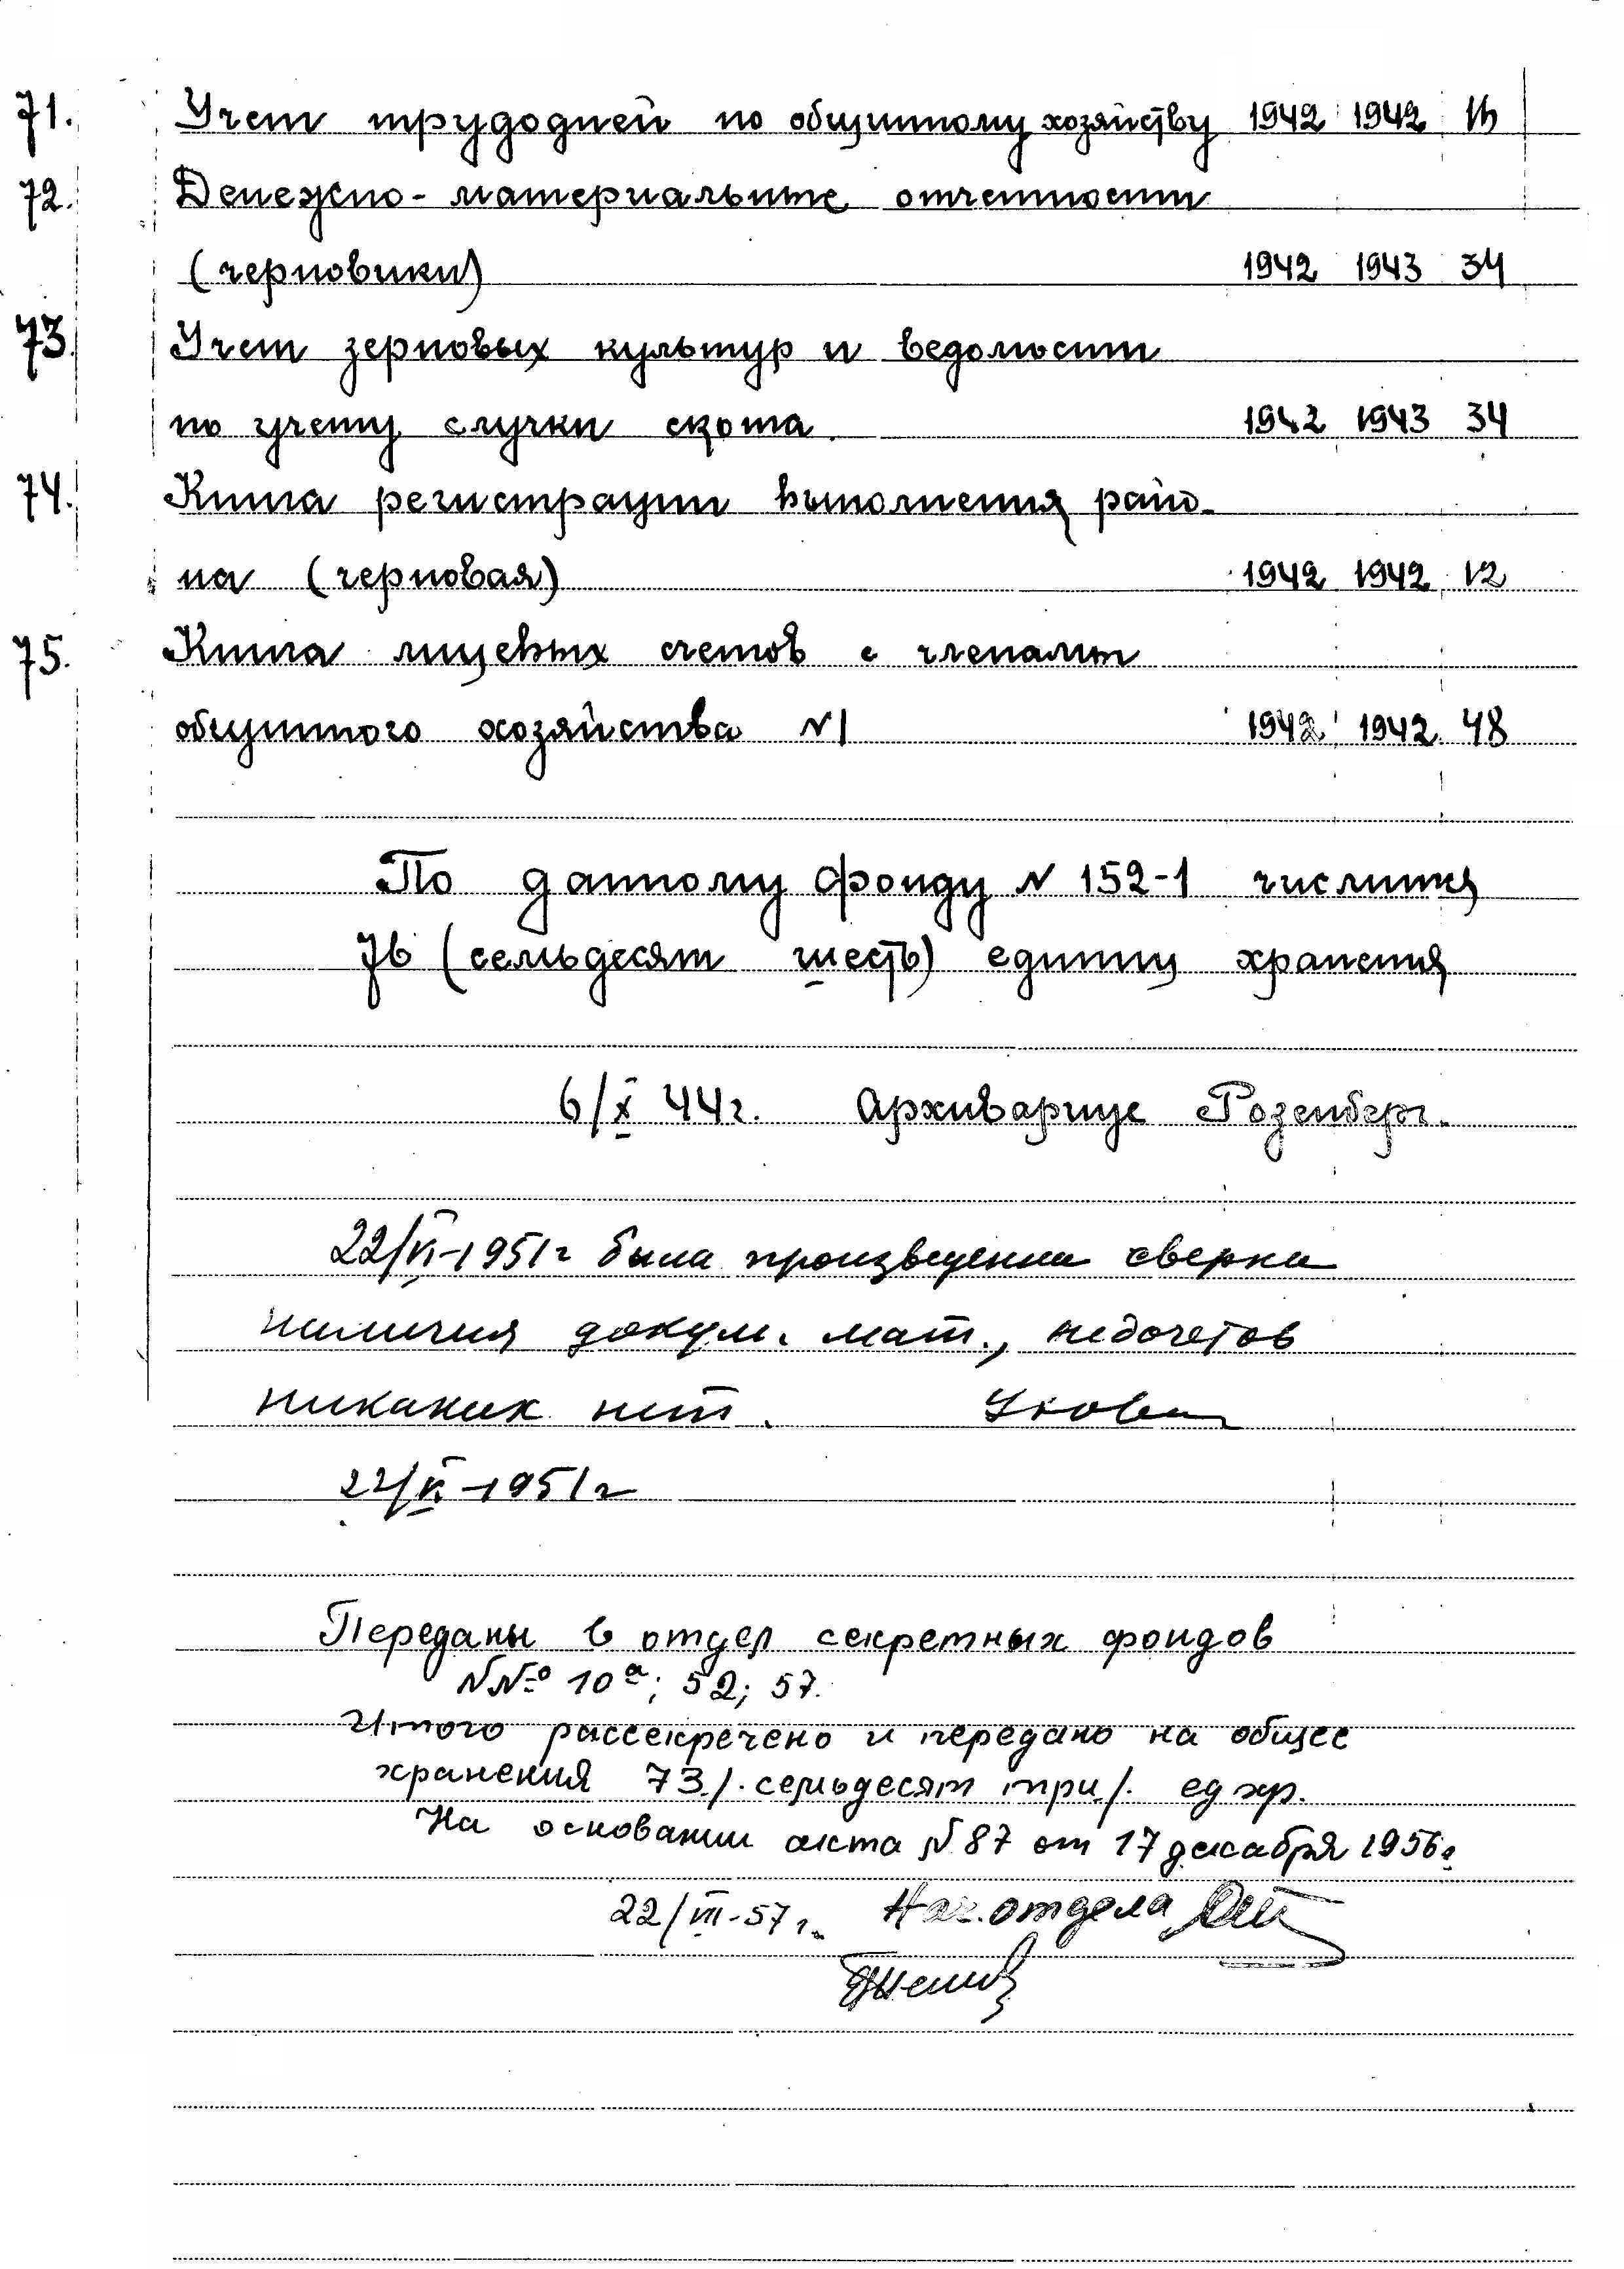 71. Учет трудодней по общинному хозяйству 1942 1942
72. Денежно-материальные отчетности
(черновики) 1942 1943 34
73. Учет зерновых культур и ведомости
по учету случки скота 1942 1943 34
74. Книга регистрации выполнения райо-
на (черновая) 1942 1942 12
75. Книга лицевых счетов с членами
общинного хозяйства N1 1942 1942 48
По данному фонду N 152-1 числится
76 (семьдесят шесть) единиц хранения
6/X 44г. Архивариус Розенберг.
22/VI-1951г была произведенна сверка
наличия докум. мат., недочетов
никаких нет.
22/VI-1951г
Переданы в отдел секретных фондов
NNº 10а; 52; 57.
Итого рассекречено и передано на общее
хранения 73/. семьдесят три/. ед хр.
На основании акта N 87 от 17 декабря 1956г.
22/VIII-57г. Нач. отдела